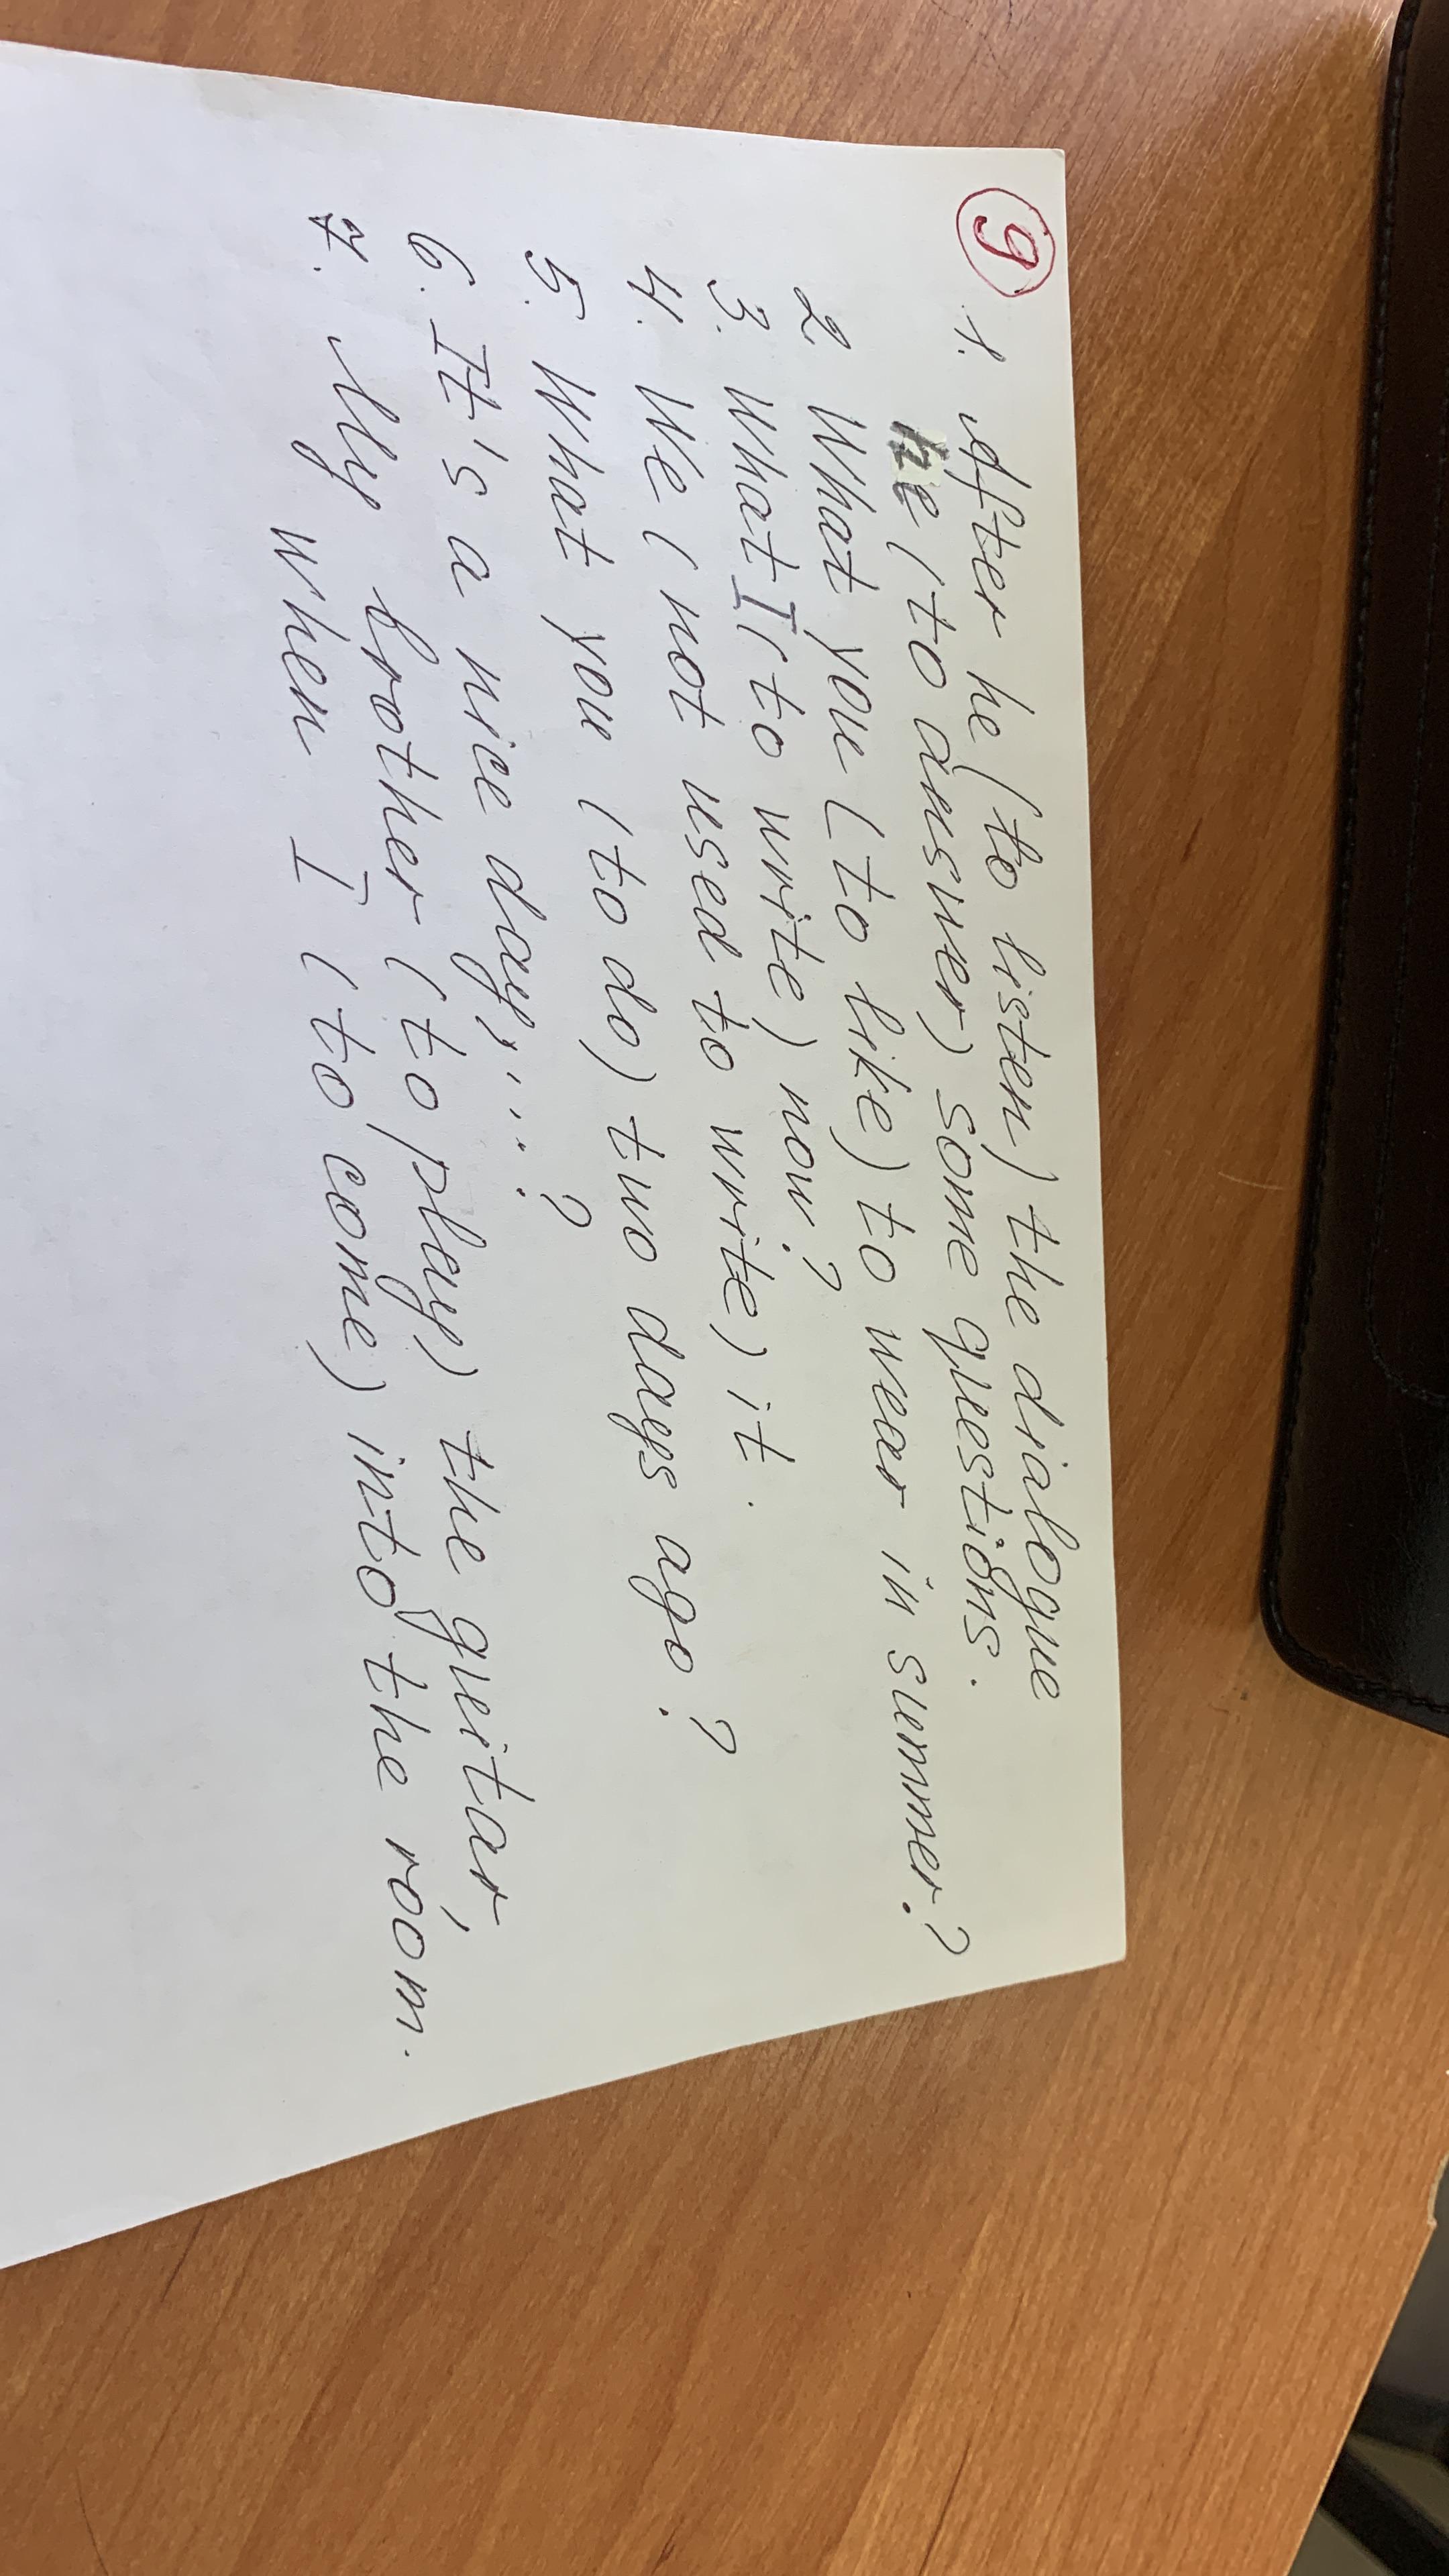 9
1. After he (to listen) the dialogue
he (to answer) some questions.
2 What you (to like) to wear in summer?
3. What I (to write) now?
4. We (not used to write) it.
5. What you (to do) two days ago?
6. It's a nice day, ...?
7. My brother (to play) the guitar,
when I (to come) into the room.